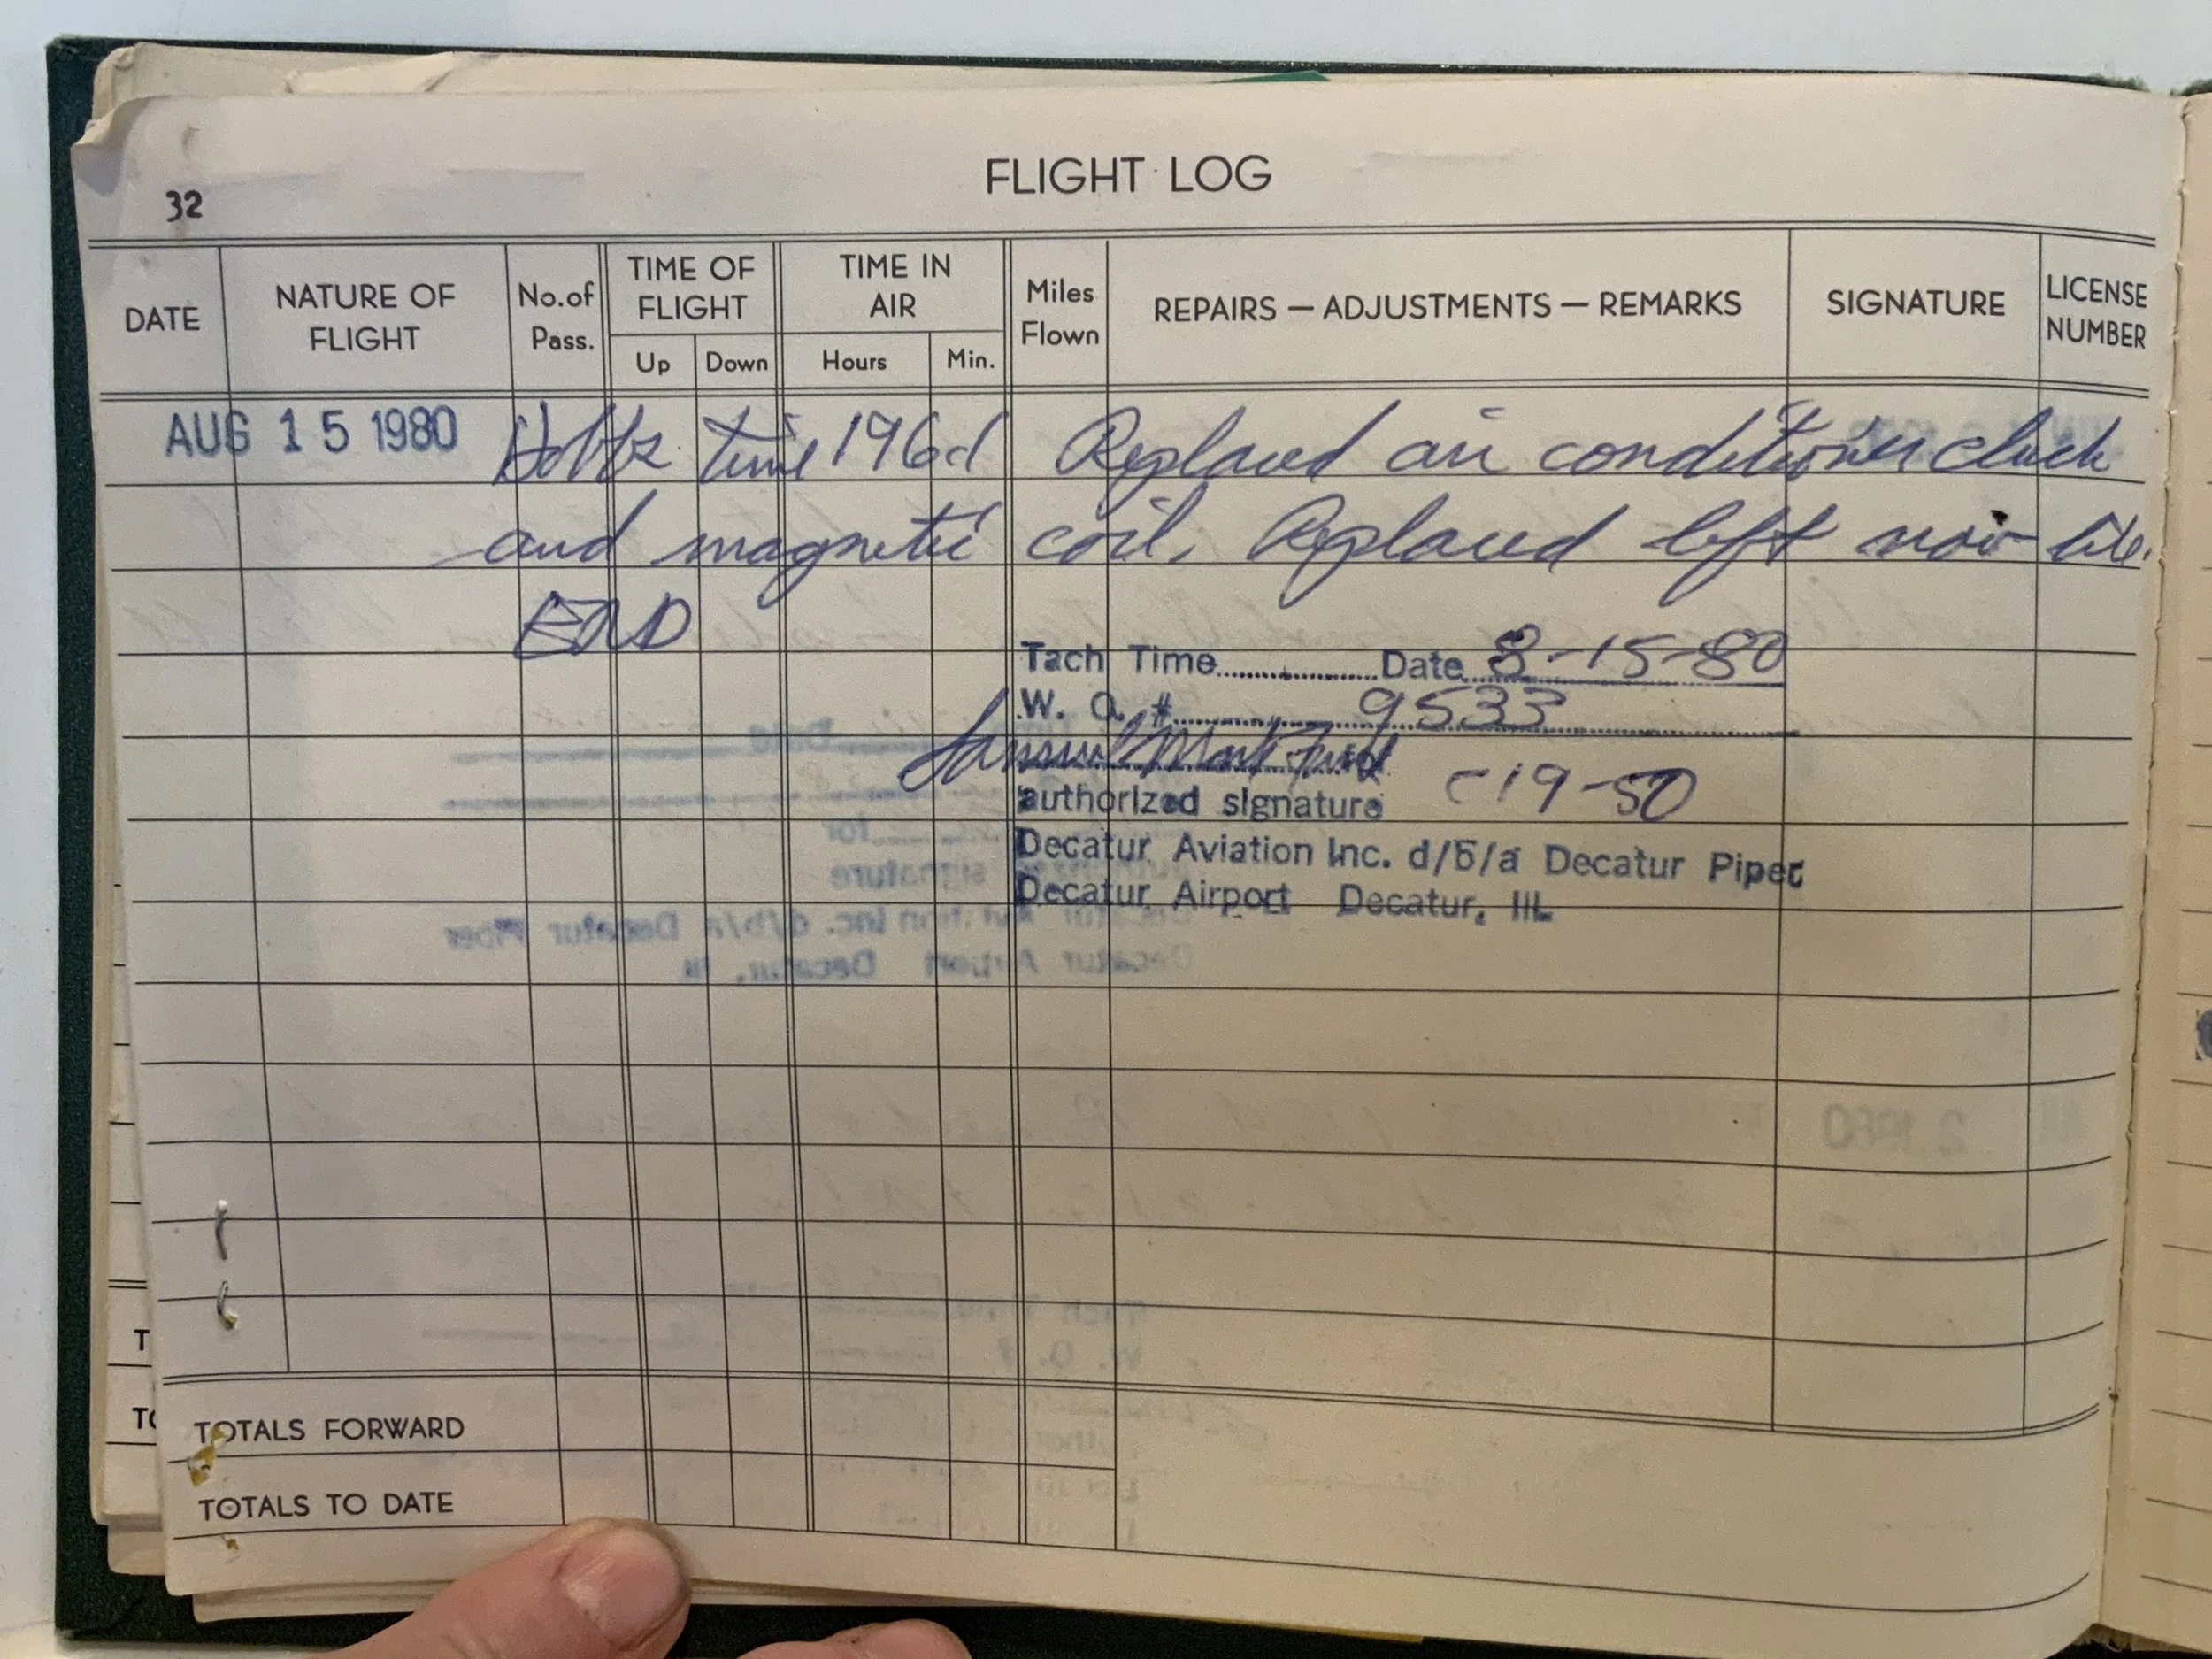 32
FLIGHT LOG
DATE NATURE OF FLIGHT No. of Pass. TIME OF FLIGHT Up Down TIME IN AIR Hours Min. Miles Flown REPAIRS — ADJUSTMENTS — REMARKS SIGNATURE LICENSE NUMBER
AUG 15 1980 Hobbs time 196 Replaced air conditioner clutch
and magnetic coil. Replaced left nav lite.
END
Tach Time Date 8-15-80
W. O. # 9533
Samuel Mark
authorized signature C19-50
Decatur Aviation Inc. d/b/a Decatur Piper
Decatur Airport Decatur, Ill.
TOTALS FORWARD
TOTALS TO DATE